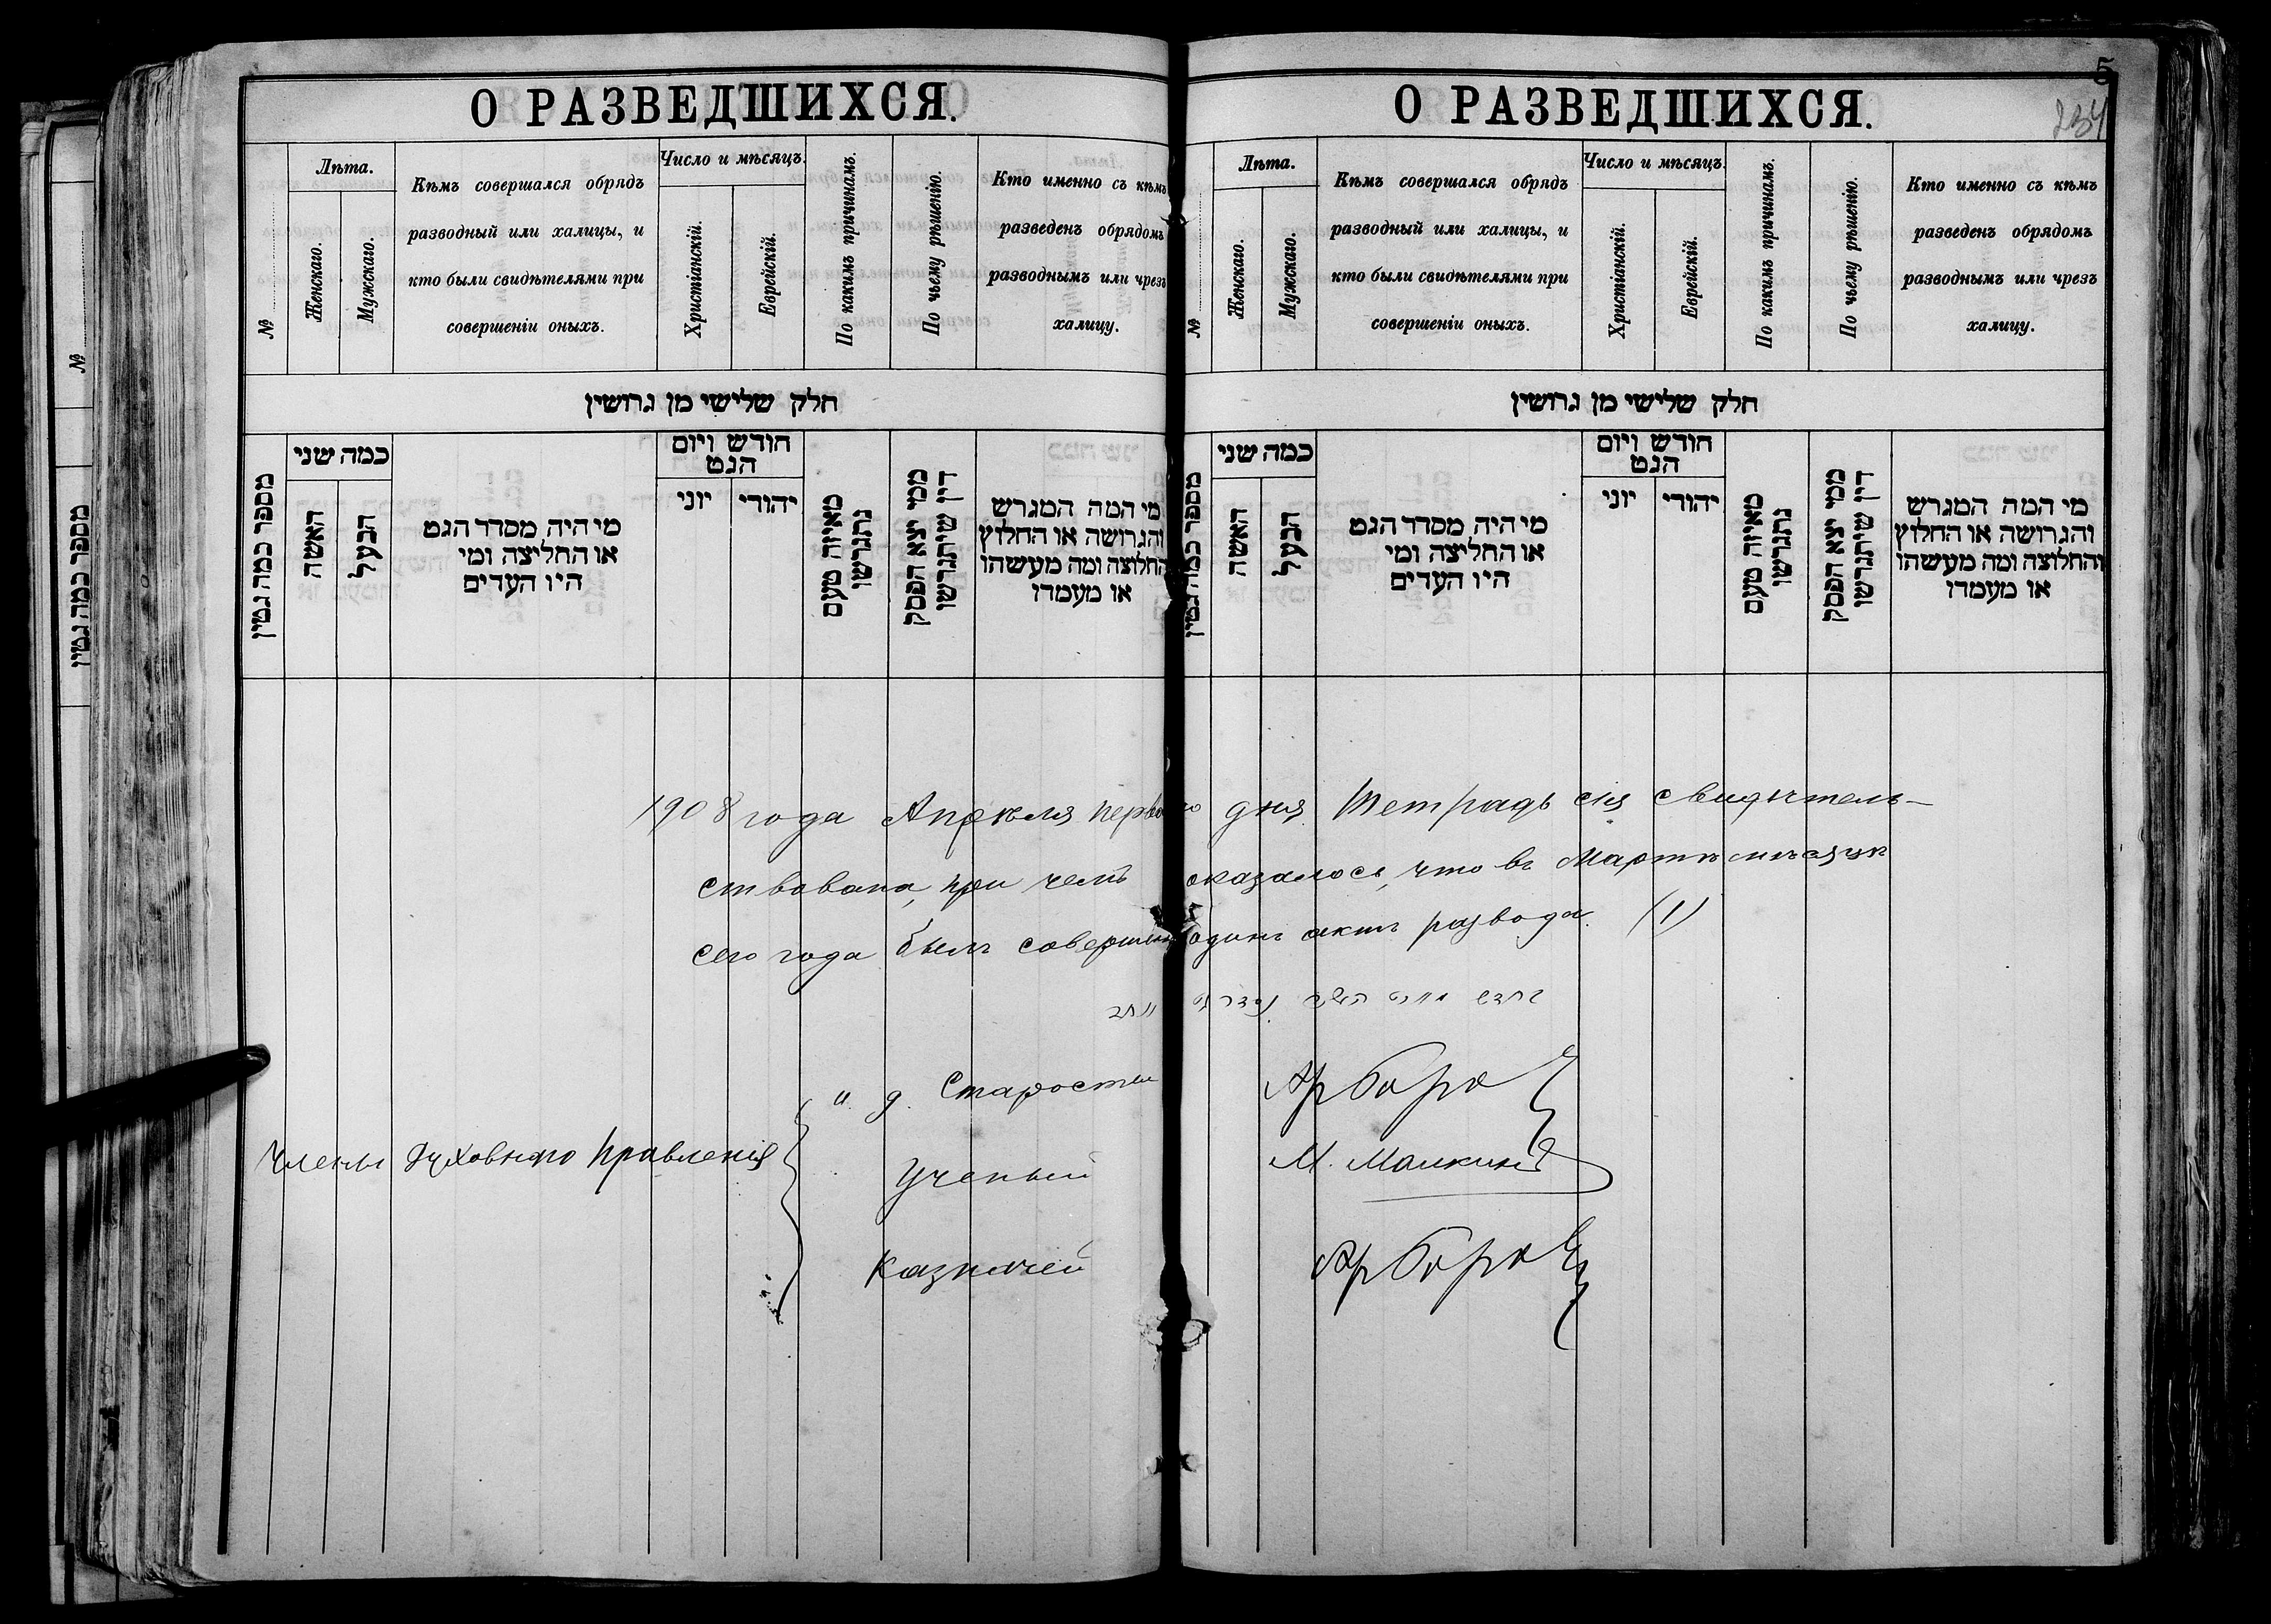 О РАЗВЕДШИХСЯ.
№
Лѣта.
Женскаго.
Мужскаго.
Кѣмъ совершался обрядъ
разводный или халицы, и
кто были свидѣтелями при
совершеніи оныхъ.
Число и мѣсяцъ.
Христіанскій.
Еврейскій.
По какимъ причинамъ.
По чьему рѣшенію.
Кто именно съ кѣмъ
разведенъ обрядомъ
разводнымъ или чрезъ
халицу.
חלק שלישי מן גרושין
מספר כמה גטין
כמה שני
האשה
הבעל
מי היה מסדר הגט
או החליצה ומי
היו העדים
חודש ויום
הגט
יוני
יהודי
מאיזה טעם
נתגרשו
ממי יצא הפסק
דין שיתגרשו
מי המה המגרש
והגרושה או החלוץ
והחלוצה ומה מעשהו
או מעמדו
О РАЗВЕДШИХСЯ.
5
234
№
Лѣта.
Женскаго.
Мужскаго.
Кѣмъ совершался обрядъ
разводный или халицы, и
кто были свидѣтелями при
совершеніи оныхъ.
Число и мѣсяцъ.
Христіанскій.
Еврейскій.
По какимъ причинамъ.
По чьему рѣшенію.
Кто именно съ кѣмъ
разведенъ обрядомъ
разводнымъ или чрезъ
халицу.
חלק שלישי מן גרושין
מספר כמה גטין
כמה שני
האשה
הבעל
מי היה מסדר הגט
או החליצה ומי
היו העדים
חודש ויום
הגט
יוני
יהודי
מאיזה טעם
נתגרשו
ממי יצא הפסק
דין שיתגרשו
מי המה המגרש
והגרושה או החלוץ
והחלוצה ומה מעשהו
או מעמדו
№
מספר כמה גטין
1908 года Апрѣля перваго дня Тетрадь сія свидѣтель-
ствована, при чемъ оказалось, что въ Мартѣ мѣсяцѣ
сего года былъ совершенъ одинъ актъ развода. (1)
Члены Духовнаго Правленія
и. д. Старосты
Ученый М. Малкинъ
Казначей